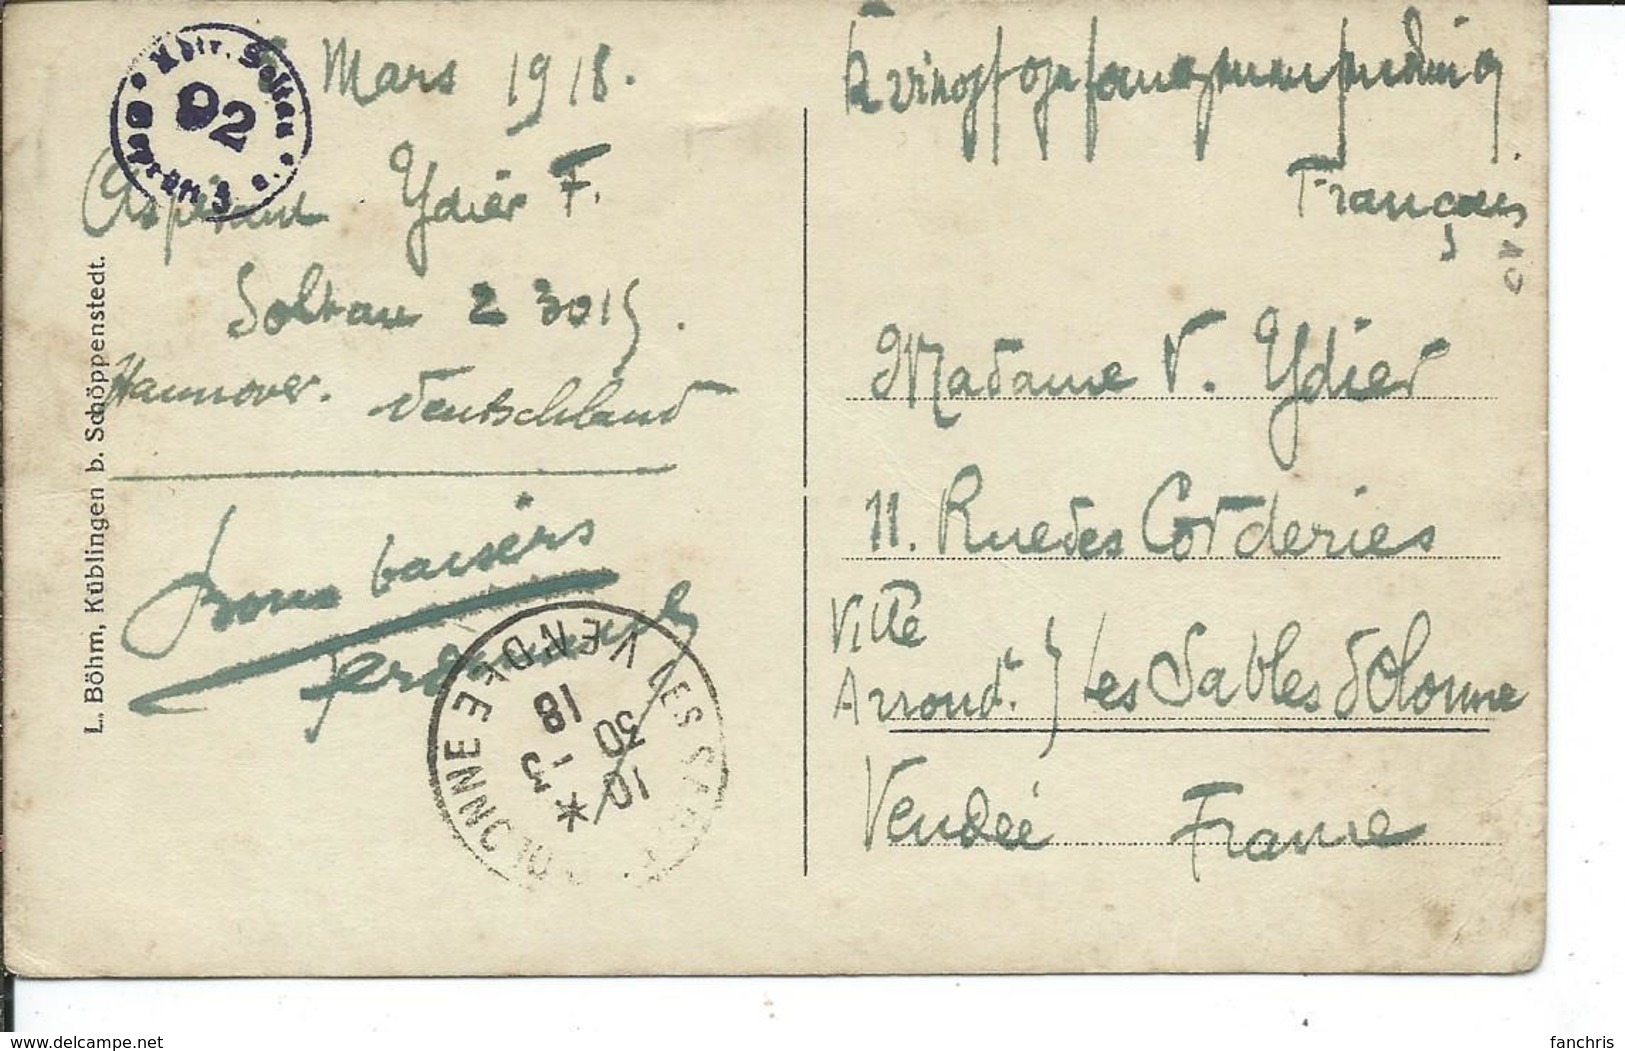 Mars 1918.
Aspirant Ydier F.
Soltau 2 3015.
Hannover. Deutschland
Bons baisers
Ferdinand
Kriegsgefangenensendung
Français
Madame V. Ydier
11. Rue des Corderies
Ville
Arrond. } Les Sables d'Olonne
Vendée France
92
LES SABLES D'OLONNE VENDEE
10 30
* 3 - 18
L. Böhm, Küblingen b. Schöppenstedt.
www.delcampe.net
fanchris